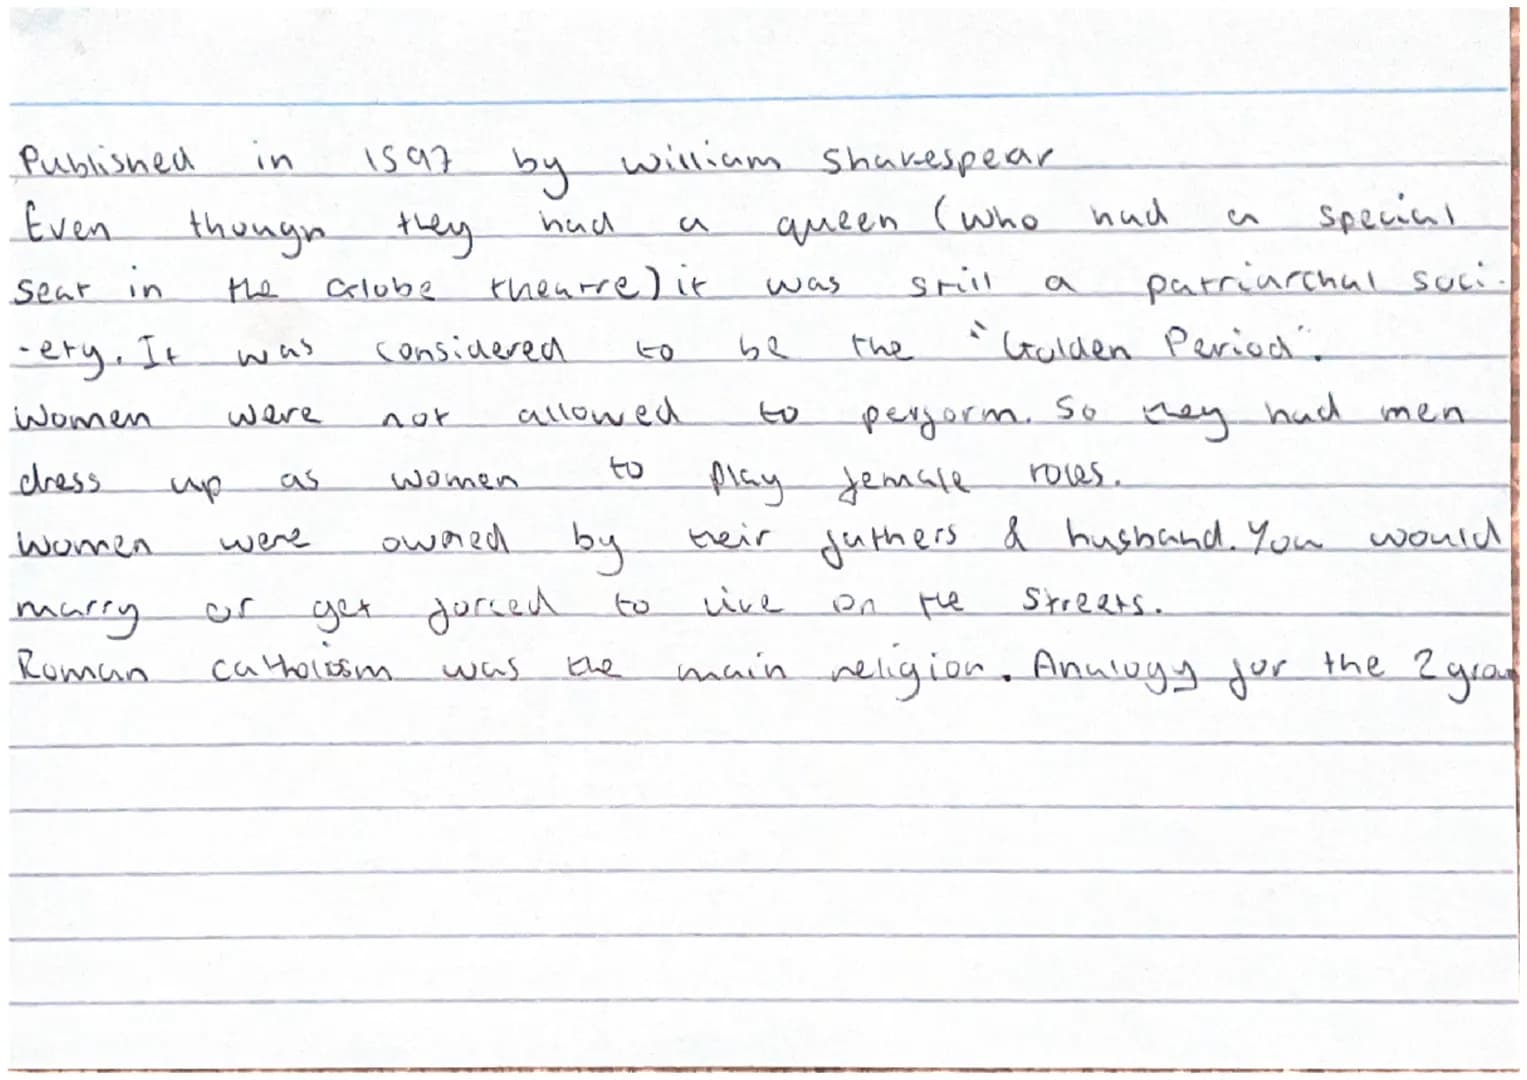 Published in 1597 by William Shakespear
Even though they had a queen (who had a special
seat in the Globe theatre) it was still a patriarchal soci-
-ety. It was considered to be the "Golden Period".
Women were not allowed to perform. So they had men
dress up as women to play female roles.
Women were owned by their fathers & husband. You would
marry or get forced to live on the streets.
Roman catholism was the main religion. Analogy for the 2